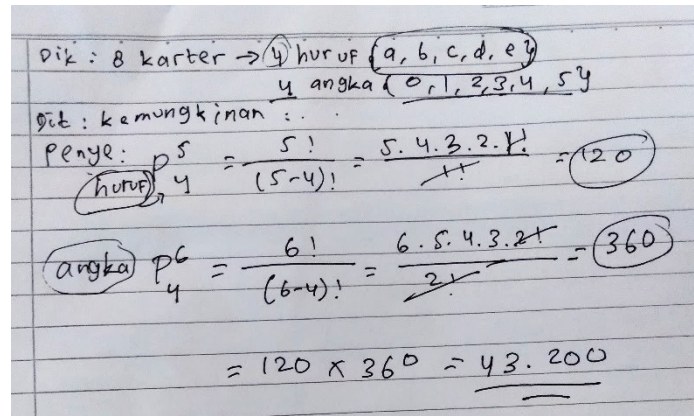 Dik : 8 karter → 4 huruf {a, b, c, d, e}
4 angka {0, 1, 2, 3, 4, 5}
Dit : kemungkinan : . .
Penye: huruf P 5 4 = 5! / (5-4)! = 5. 4. 3. 2. 1! / 1! = 120
angka P 6 4 = 6! / (6-4)! = 6. 5. 4. 3. 2! / 2! = 360
= 120 x 360 = 43.200